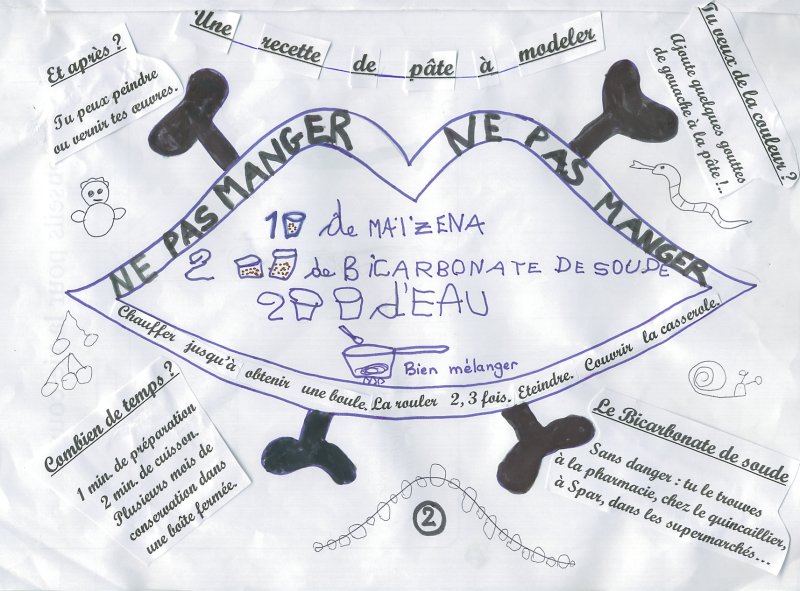 Une recette de pâte à modeler
Et après ?
Tu peux peindre
ou vernir tes œuvres.
Tu veux de la couleur ?
Ajoute quelques gouttes
de gouache à la pâte !..
NE PAS MANGER
NE PAS MANGER
1 de MAÏZENA
2 de BiCARBONATE DE SOUDE
2 d'EAU
Bien mélanger
Chauffer jusqu'à obtenir une boule. La rouler 2, 3 fois. Eteindre. Couvrir la casserole.
Combien de temps ?
1 min. de préparation
2 min. de cuisson.
Plusieurs mois de
conservation dans
une boîte fermée.
Le Bicarbonate de soude
Sans danger : tu le trouves
à la pharmacie, chez le quincaillier,
à Spar, dans les supermarchés...
2